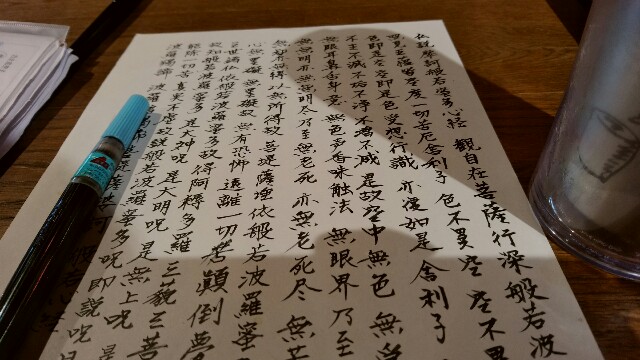 仏説摩訶般若波羅蜜多心経 観自在菩薩行深般若波
照見五蘊皆空度一切苦厄舎利子 色不異空 空不異
色即是空空即是色受想行識 亦復如是 舎利子
不生不滅不垢不浄不増不減 是故空中無色 無受
無眼耳鼻舌身意 無色声香味触法 無眼界乃至
無無明亦無無明尽乃至無老死 亦無老死尽 無苦
無智亦無得以無所得故菩提薩埵依般若波羅蜜
心無罣礙 無罣礙故 無有恐怖 遠離一切顛倒夢
三世諸仏依般若波羅蜜多故得阿耨多羅三藐三菩
故知般若波羅蜜多是大神呪 是大明呪 是無上呪 是
能除一切苦真実不虚故説般若波羅蜜多呪 即説呪
波羅羯諦 波羅